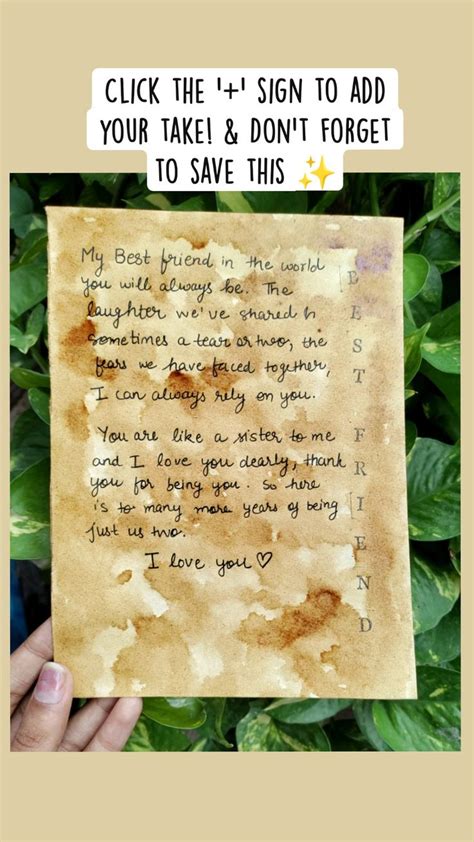 CLICK THE '+' SIGN TO ADD
YOUR TAKE! & DON'T FORGET
TO SAVE THIS ✨
My Best friend in the world
you will always be. The
laughter we've shared h
sometimes a tear or two, the
fears we have faced together,
I can always rely on you.
You are like a sister to me
and I love you dearly, thank
you for being you. So here
is to many more years of being
just us two.
I love you ♡
BEST FRIEND